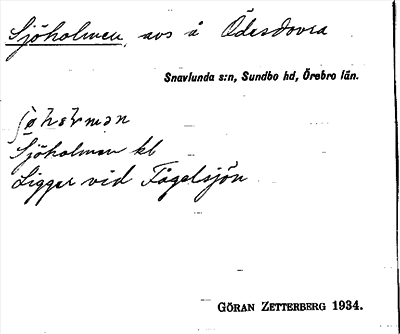 Sjöholmen, avs å Ödesdovra
Snavlunda s:n, Sundbo hd, Örebro län.
Sjöholmen kl
Ligger vid Fågelsjön
GÖRAN ZETTERBERG 1934.